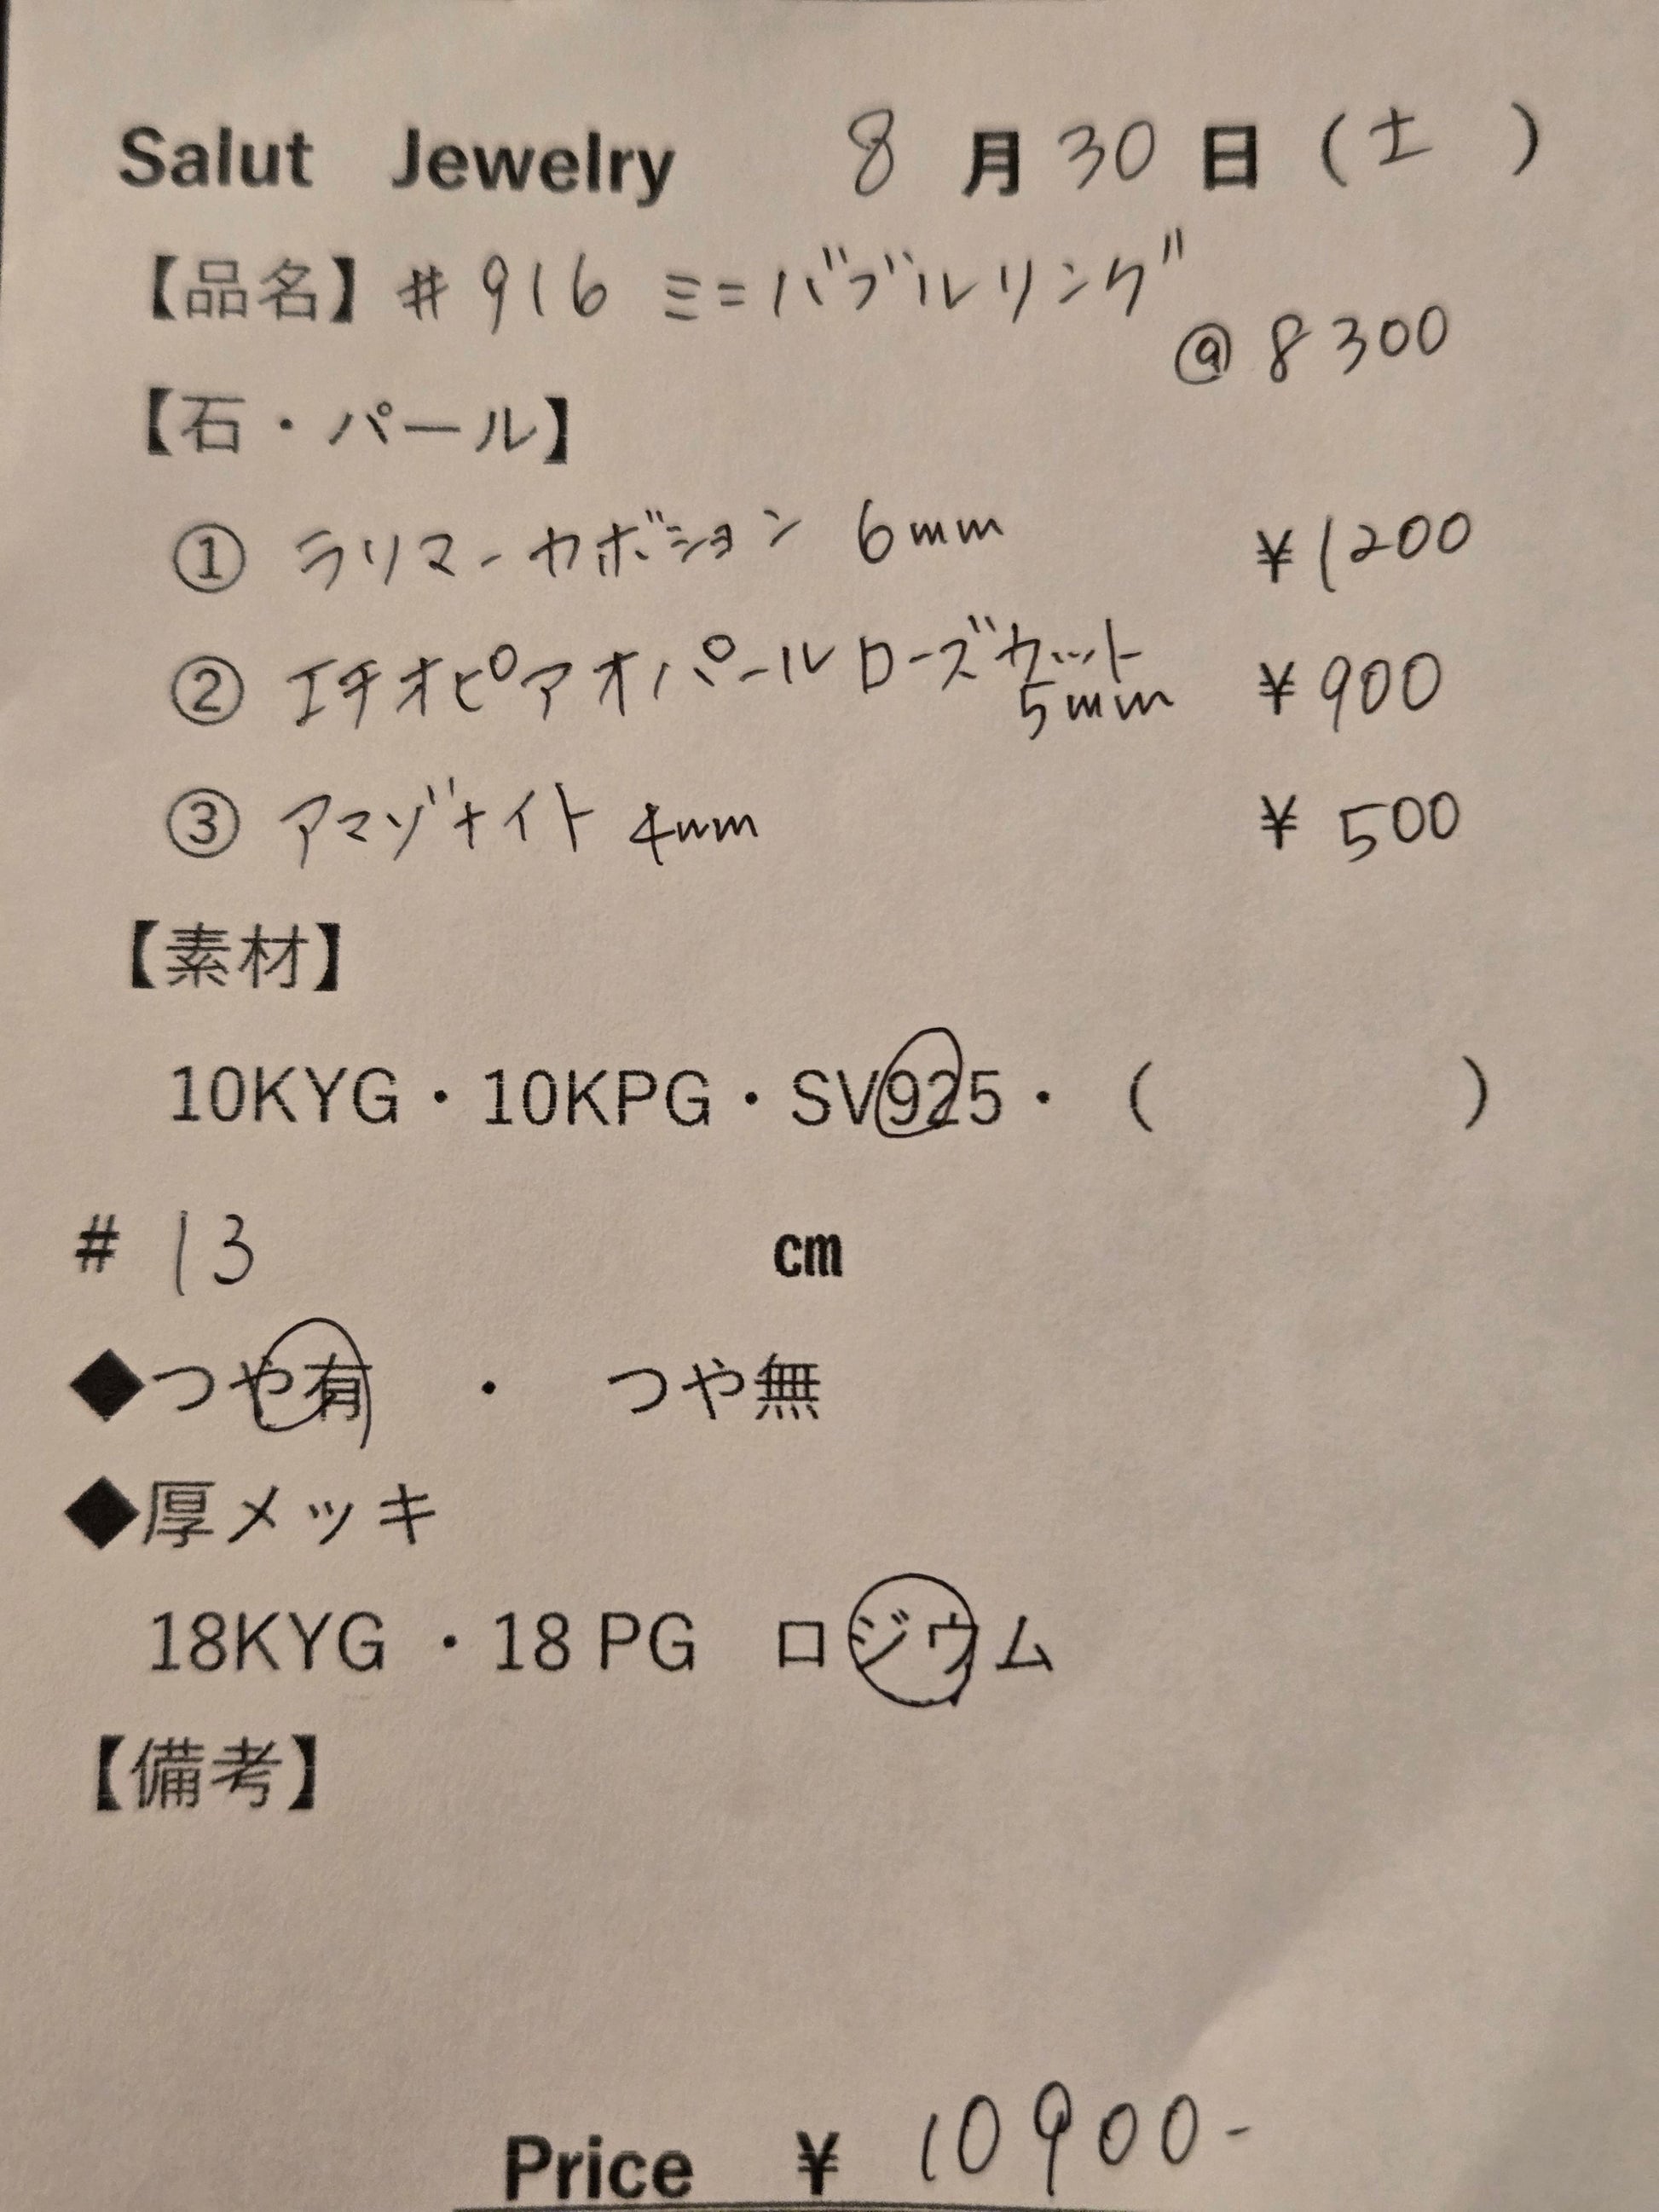 Salut Jewelry 8月30日(土)
【品名】#916 ミニバブルリング
@8300
【石・パール】
① ラリマーカボション 6mm ¥1200
② エチオピアオパールローズカット 5mm ¥900
③ アマゾナイト 4mm ¥500
【素材】
10KYG・10KPG・SV925・( )
# 13 cm
◆つや有 ・ つや無
◆厚メッキ
18KYG ・18 PG ロジウム
【備考】
Price ¥ 10900-